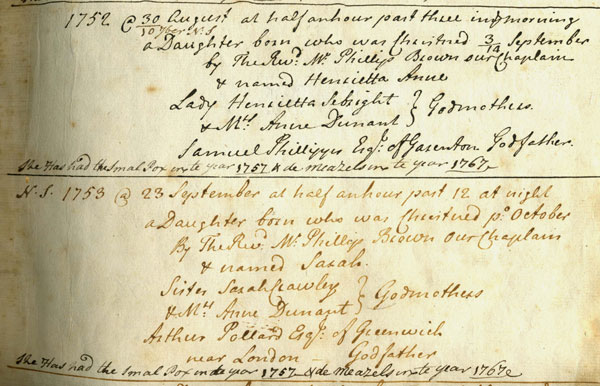 1752 @ 30 August at half an hour past three in ye morning
10 7ber N.S.
a Daughter born who was Christned 3/14 September
by The Revd. Mr. Phillips Brown our Chaplain
& named Henrietta Anne
Lady Henrietta Sebright } Godmothers.
& Mrs. Anne Dunant
Samuel Phillipps Esqr. of Garenton Godfather.
She Has had the Smal Pox in te year 1757 & de meazels in te year 1767
N.S. 1753 @ 23 September at half an hour past 12 at night
a Daughter born who was Christned po. October
By The Revd. Mr. Phillips Brown our Chaplain
& named Sarah.
Sister Sarah Crawley } Godmothers
& Mrs. Anne Dunant
Arthur Pollard Esqr. of Greenwich
near London — Godfather
She Has had the Smal Pox in de year 1757 & de meazels in te year 1767